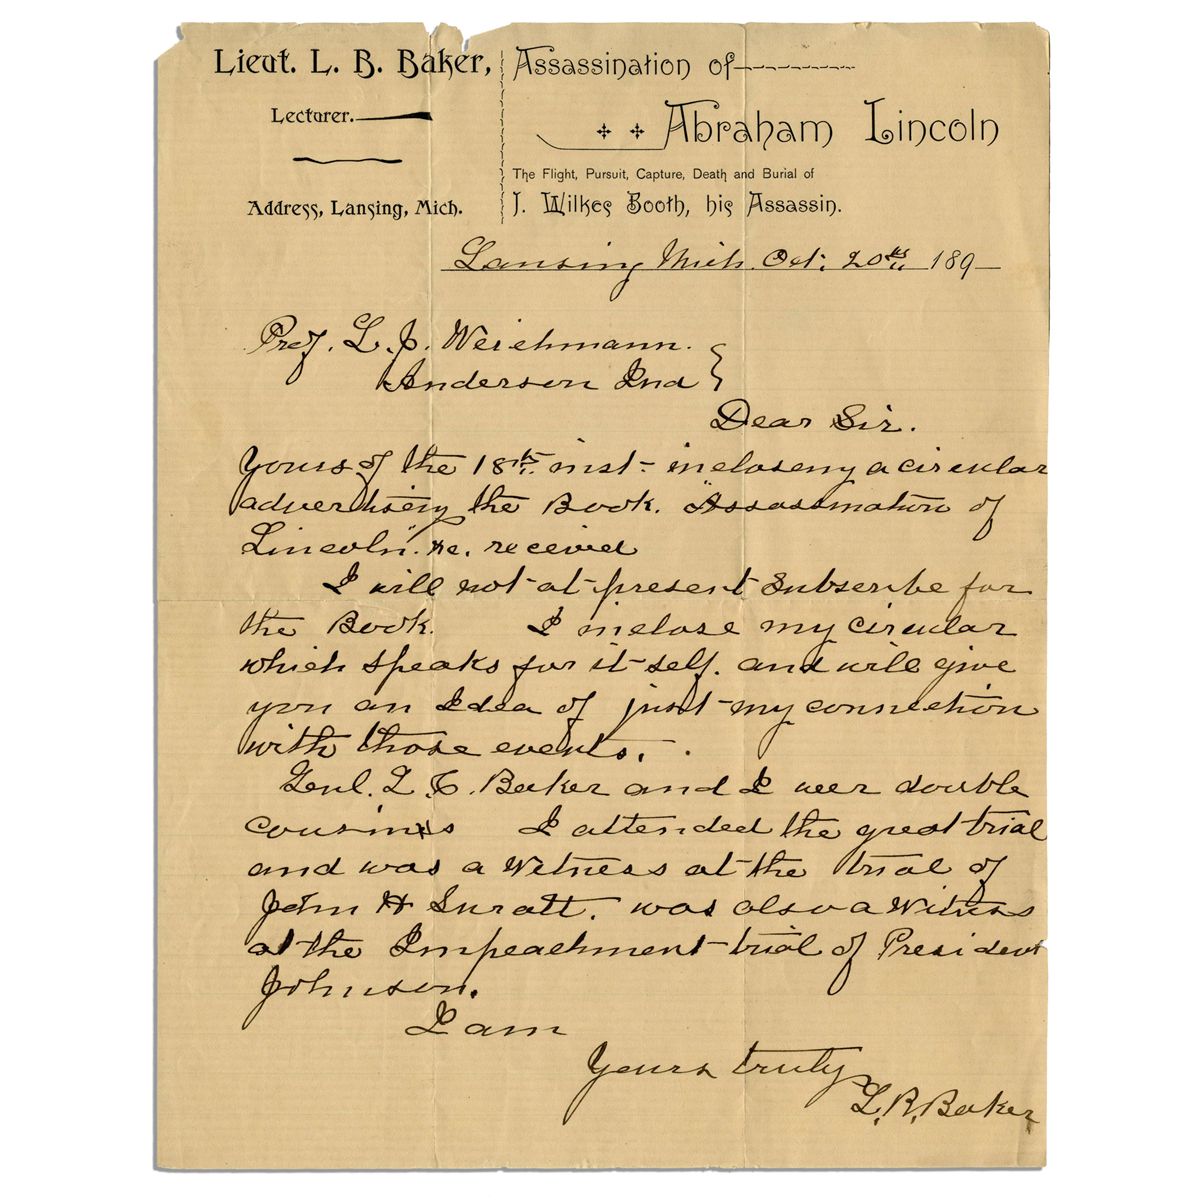 Lieut. L. B. Baker,
Lecturer.
Address, Lansing, Mich.
Assassination of
Abraham Lincoln
The Flight, Pursuit, Capture, Death and Burial of
J. Wilkes Booth, his Assassin.
Lansing Mich. Oct. 20th 189
Prof. L. J. Weichmann.
Anderson Ind
Dear Sir.
Yours of the 18th inst- inclosing a circular
advertising the Book. "Assassination of
Lincoln" &c. received
I will not at present Subscribe for
the Book. I inclose my circular
which speaks for it self. and will give
you an Idea of just my connection
with those events.
Genl. L. C. Baker and I wer double
cousins I attended the great trial
and was a Witness at the trial of
John H Suratt. was also a Witness
at the Impeachment trial of President
Johnson.
I am
Yours truly
L. B. Baker